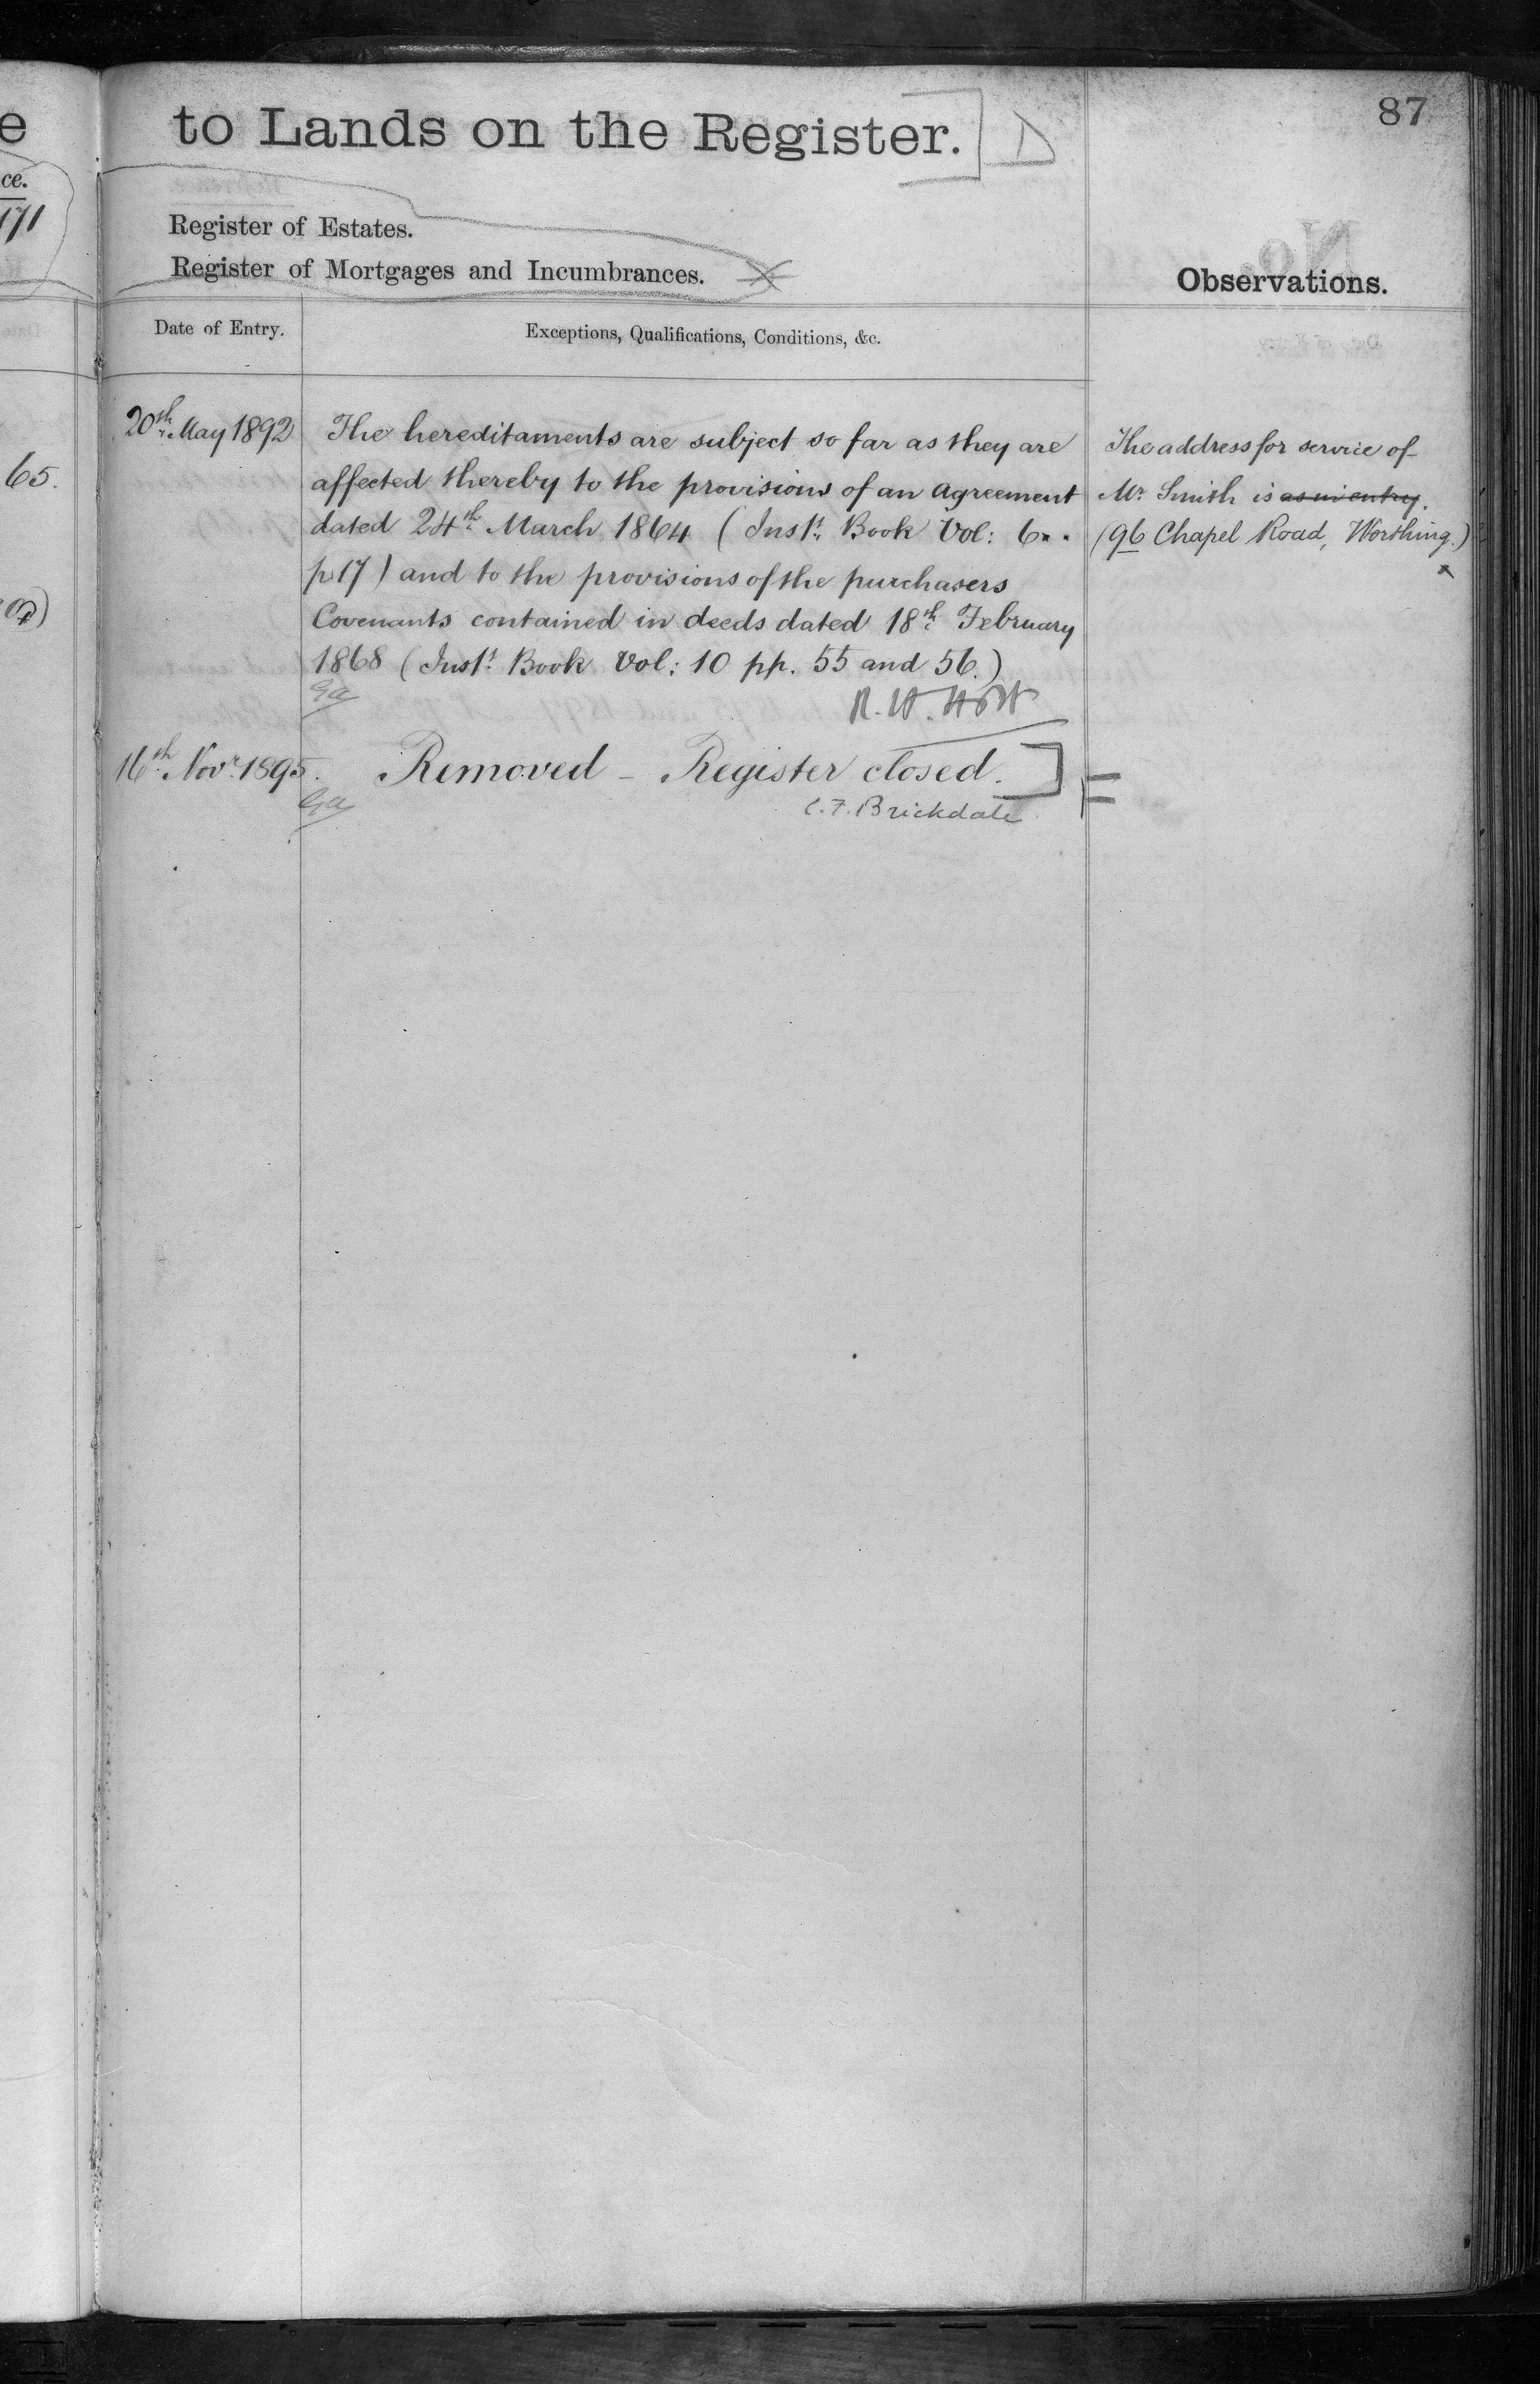 87
to Lands on the Register.
D
Register of Estates.
Register of Mortgages and Incumbrances.
Observations.
Date of Entry.
Exceptions, Qualifications, Conditions, &c.
20th May 1892
The hereditaments are subject so far as they are
affected thereby to the provisions of an agreement
dated 24th March 1864 (Inst. Book Vol: 6..
p 17) and to the provisions of the purchasers
Covenants contained in deeds dated 18th February
1868 (Inst. Book Vol: 10 pp. 55 and 56.)
The address for service of
Mr. Smith is as in entry.
(96 Chapel Road, Worthing.)
16th Novr. 1895.
Removed - Register closed.
C.F. Brickdale
e
ce.
171
65.